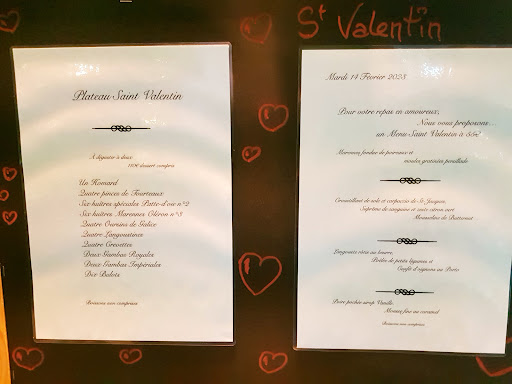 St Valentin
Plateau Saint Valentin
A déguster à deux
110€ dessert compris
Un Homard
Quatre pinces de Tourteaux
Six huîtres spéciales Patte d'oie n°2
Six huîtres Marennes Oléron n°3
Quatre Oursins de Galice
Quatre Langoustines
Quatre Crevettes
Deux Gambas Royales
Deux Gambas Impériales
Dix Bulots
Boissons non comprises
Mardi 14 Février 2023
Pour votre repas en amoureux,
Nous vous proposons...
un Menu Saint Valentin à 55€
fondue de poireaux et
moules gratinées persillade
Croustillant de sole et carpaccio de St Jacques,
Suprême de sanguine et caviar citron vert
Mousseline de Butternut
Langouste rôtie au beurre,
Poêlée de petits légumes et
Confit d'oignons au Porto
Poire pochée sirop Vanille,
Mousse fine au caramel
Boissons non comprises